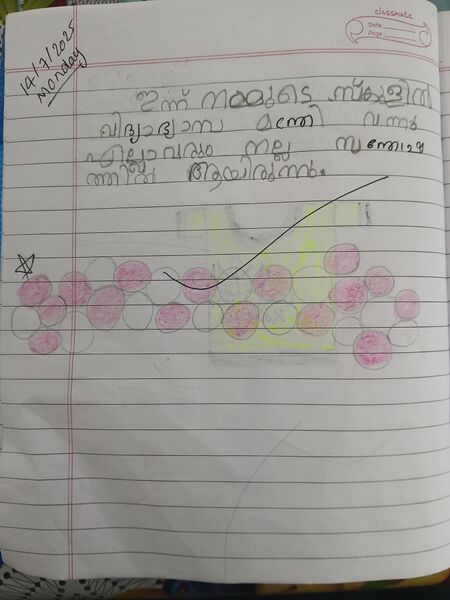 classmate
Date
Page
14/7/2025
Monday
ഇന്ന് നമ്മുടെ സ്കൂളിൽ
വിദ്യാദ്യാസ മന്ത്രി വന്നു
എല്ലാവരും നല്ല സന്തോഷ
ത്തിൽ ആയിരുന്നു.